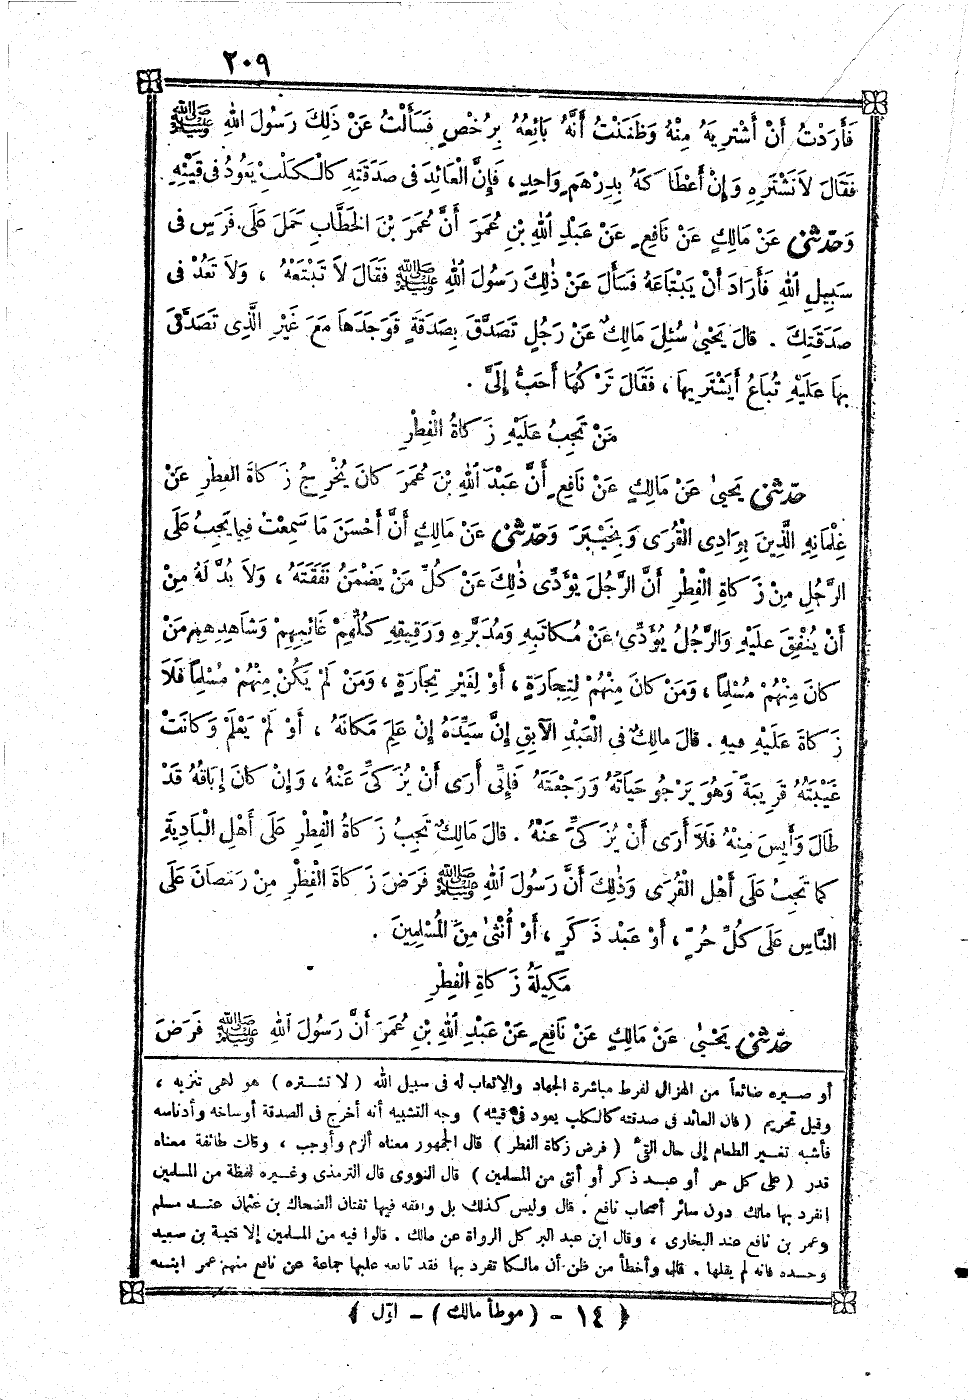 ٢٠٩
فَأَرَدْتُ أَنْ أَشْتَرِيَهُ مِنْهُ وَظَنَنْتُ أَنَّهُ بَائِعُهُ بِرُخْصٍ فَسَأَلْتُ عَنْ ذَلِكَ رَسُولَ اللهِ ﷺ
فَقَالَ لَا تَشْتَرِهِ وَإِنْ أَعْطَاكَهُ بِدِرْهَمٍ وَاحِدٍ ، فَإِنَّ الْعَائِدَ فِي صَدَقَتِهِ كَالْكَلْبِ يَعُودُ فِي قَيْئِهِ .
وَحَدَّثَنِي عَنْ مَالِكٍ عَنْ نَافِعٍ عَنْ عَبْدِ اللهِ بْنِ عُمَرَ أَنَّ عُمَرَ بْنَ الْخَطَّابِ حَمَلَ عَلَى فَرَسٍ فِي
سَبِيلِ اللهِ فَأَرَادَ أَنْ يَبْتَاعَهُ فَسَأَلَ عَنْ ذٰلِكَ رَسُولَ اللهِ ﷺ فَقَالَ لَا تَبْتَعْهُ ، وَلَا تَعُدْ فِي
صَدَقَتِكَ . قَالَ يَحْيٰى سُئِلَ مَالِكٌ عَنْ رَجُلٍ تَصَدَّقَ بِصَدَقَةٍ فَوَجَدَهَا مَعَ غَيْرِ الَّذِي تَصَدَّقَ
بِهَا عَلَيْهِ تُبَاعُ أَيَشْتَرِيهَا ، فَقَالَ تَرْكُهَا أَحَبُّ إِلَيَّ .
مَنْ تَجِبُ عَلَيْهِ زَكَاةُ الْفِطْرِ
حَدَّثَنِي يَحْيٰى عَنْ مَالِكٍ عَنْ نَافِعٍ أَنَّ عَبْدَ اللهِ بْنَ عُمَرَ كَانَ يُخْرِجُ زَكَاةَ الْفِطْرِ عَنْ
غِلْمَانِهِ الَّذِينَ بِوَادِي الْقُرَى وَبِخَيْبَرَ وَحَدَّثَنِي عَنْ مَالِكٍ أَنَّ أَحْسَنَ مَا سَمِعْتُ فِيمَا يَجِبُ عَلَى
الرَّجُلِ مِنْ زَكَاةِ الْفِطْرِ أَنَّ الرَّجُلَ يُؤَدِّي ذٰلِكَ عَنْ كُلِّ مَنْ يَضْمَنُ نَفَقَتَهُ ، وَلَا بُدَّ لَهُ مِنْ
أَنْ يُنْفِقَ عَلَيْهِ وَالرَّجُلُ يُؤَدِّي عَنْ مُكَاتَبِهِ وَمُدَبَّرِهِ وَرَقِيقِهِ كُلِّهِمْ غَائِبِهِمْ وَشَاهِدِهِمْ مَنْ
كَانَ مِنْهُمْ مُسْلِمًا ، وَمَنْ كَانَ مِنْهُمْ لِتِجَارَةٍ ، أَوْ لِغَيْرِ تِجَارَةٍ ، وَمَنْ لَمْ يَكُنْ مِنْهُمْ مُسْلِمًا فَلَا
زَكَاةَ عَلَيْهِ فِيهِ . قَالَ مَالِكٌ فِي الْعَبْدِ الْآبِقِ إِنَّ سَيِّدَهُ إِنْ عَلِمَ مَكَانَهُ ، أَوْ لَمْ يَعْلَمْ وَكَانَتْ
غَيْبَتُهُ قَرِيبَةً وَهُوَ يَرْجُو حَيَاتَهُ وَرَجْعَتَهُ فَإِنِّي أَرَى أَنْ يُزَكِّيَ عَنْهُ ، وَإِنْ كَانَ إِبَاقُهُ قَدْ
طَالَ وَأَيِسَ مِنْهُ فَلَا أَرَى أَنْ يُزَكِّيَ عَنْهُ . قَالَ مَالِكٌ تَجِبُ زَكَاةُ الْفِطْرِ عَلَى أَهْلِ الْبَادِيَةِ
كَمَا تَجِبُ عَلَى أَهْلِ الْقُرَى وَذٰلِكَ أَنَّ رَسُولَ اللهِ ﷺ فَرَضَ زَكَاةَ الْفِطْرِ مِنْ رَمَضَانَ عَلَى
النَّاسِ عَلَى كُلِّ حُرٍّ ، أَوْ عَبْدٍ ذَكَرٍ ، أَوْ أُنْثٰى مِنَ الْمُسْلِمِينَ .
مَكِيلَةُ زَكَاةِ الْفِطْرِ
حَدَّثَنِي يَحْيٰى عَنْ مَالِكٍ عَنْ نَافِعٍ عَنْ عَبْدِ اللهِ بْنِ عُمَرَ أَنَّ رَسُولَ اللهِ ﷺ فَرَضَ
أو صيره ضائعاً من الهزال لفرط مباشرة الجهاد والإتعاب له فى سبيل الله ( لا تشتره ) هو نهى تنزيه ،
وقيل تحريم ( فان العائد فى صدقته كالكلب يعود فى قيئه ) وجه التشبيه أنه أخرج فى الصدقة أوساخه وأدناسه
فأشبه تغيير الطعام إلى حال القئ ( فرض زكاة الفطر ) قال الجمهور معناه ألزم وأوجب ، وقالت طائفة معناه
قدر ( على كل حر أو عبد ذكر أو أنثى من المسلمين ) قال النووى قال الترمذى وغيره لفظة من المسلمين
انفرد بها مالك دون سائر أصحاب نافع . قال وليس كذلك بل وافقه فيها ثقتان الضحاك بن عثمان عند مسلم
وعمر بن نافع عند البخارى ، وقال ابن عبد البر كل الرواة عن مالك . قالوا فيه من المسلمين إلا قتيبة بن سعيد
وحده فانه لم يقلها . قال وأخطأ من ظن أن مالكا تفرد بها فقد تابعه عليها جماعة عن نافع منهم عمر ابنه
﴿ ١٤ - ( موطأ مالك ) - أوّل ﴾